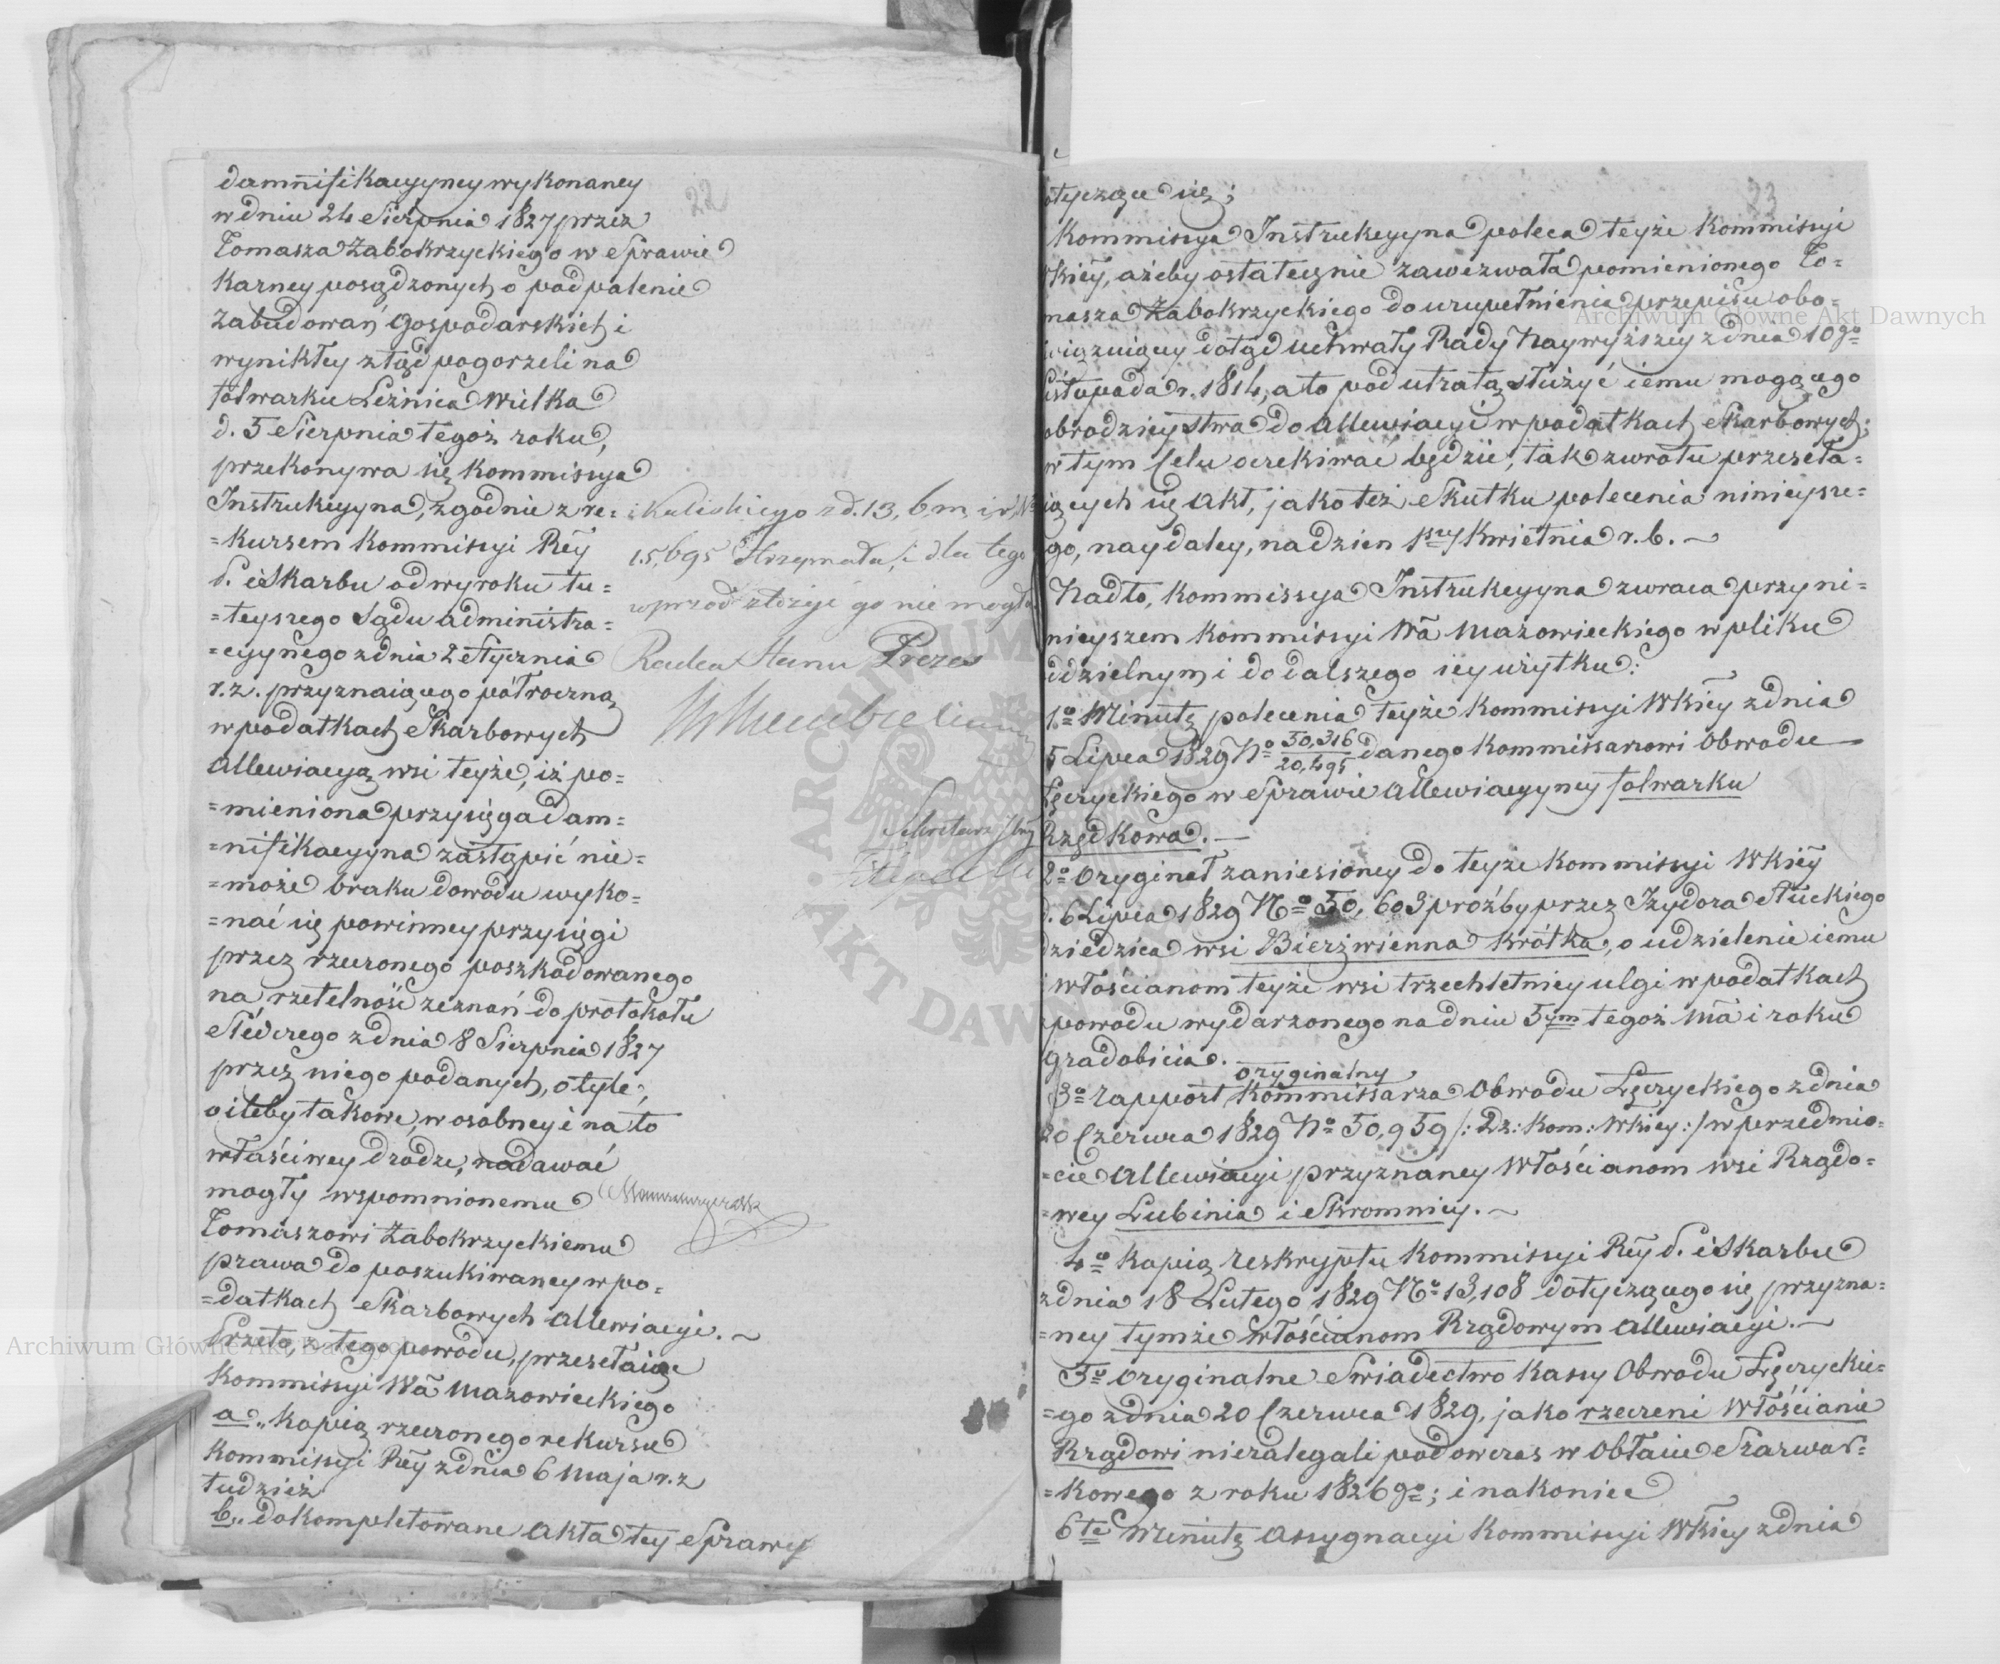 22
damnifikacyyney wykonaney
w dniu 24 Sierpnia 1827 przez
Tomasza Zabokrzyckiego w Sprawie
Karney posądzonych o podpalenie
Zabudowań Gospodarskich i
wynikłey ztąd pogorzeli na
folwarku Leźnica Wielka
d. 5 Sierpnia tegoż roku,
przekonywa się Kommissya
Instrukcyyna, zgodnie z re=
=kursem Kommissyi Rey
P. i Skarbu od wyroku tu=
=teyszego Sądu administra=
=cyynego z dnia 2 Stycznia
r. z. przyznaiącego półroczną
w podatkach Skarbowych
Allewiacyą wsi teyże, iż po=
=mieniona przysięga dam=
=nifikacyyna zastąpić nie=
=może braku dowodu wyko=
=nać się powinney przysięgi
przez rzeczonego poszkodowanego
na rzetelność zeznań do protokołu
Śledczego z dnia 8 Sierpnia 1827
przez niego podanych, o tyle,
o ileby takowe, w osobney i na to
właściwey drodze, nadawać
mogły wspomnionemu
Tomaszowi Zabokrzyckiemu
prawa do poszukiwaney w po=
=datkach Skarbowych Allewiacyi.
Przeto, z tego powodu, przesełaiąc
Kommissyi Wa Mazowieckiego
a,, kopią rzeczonego rekursu
Kommissyi Rey z dnia 6 Maja r. z
tudzież
b,, dokompletowane Akta tey Sprawy
Kaliskiego z d. 13, b, m, i, r, N
15,695 Otrzymała, i dla tego
wprzód złożyć go nie mogła
Radca Stanu Prezes
Sekretarz Jlny
23
otyczące się;
Kommissya Instrukcyyna poleca teyże Kommissyi
Wkiey, ażeby ostatecznie zawezwała pomienionego To=
masza Zabokrzyckiego do uzupełnienia przepisu obo=
wiązuiącey dotąd uchwały Rady Naywyższey z dnia 10go
Listopada r. 1814, a to pod utratą służyć iemu mogącego
obrodzieystwa do Allewiacyi w podatkach Skarbowych;
w tym Celu oczekiwać będzie, tak zwrotu przeseła=
iących się Akt, jako też Skutku polecenia ninieysze=
go, naydaley, na dzien 1szy Kwietnia r. b.
Nadto, Kommissya Instrukcyyna zwraca przy ni=
nieyszem Kommissyi Wa Mazowieckiego w pliku
oddzielnym i do dalszego iey użytku:
1o Minutę polecenia teyże Kommissyi Wkiey z dnia
5 Lipca 1829 No 50,316/20,495 danego Kommissarzowi Obwodu
Łęczyckiego w Sprawie Allewiacyyney folwarku
Rzędkowa.
2o Oryginał zaniesioney do teyże Kommissyi Wkiey
d. 6 Lipca 1829 No 50,603 prośby przez Izydora Słuckiego
dziedzica wsi Bierzwienna krótka, o udzielenie iemu
i włościanom teyże wsi trzechletniey ulgi w podatkach
powodu wydarzonego na dniu 5ym tegoż Ma i roku
gradobicia.
3o Rapport oryginalny Kommissarza Obwodu Łęczyckiego z dnia
20 Czerwca 1829 No 50,959 /: Dz: Kom: Wkiey :/ w przedmio=
=cie Allewiacyi przyznaney Włościanom wsi Rządo=
=wey Lubinia i Skromnicy.
4o Kopią Reskryptu Kommissyi Rey P. i Skarbu
z dnia 18 Lutego 1829 No 13,108 dotyczącego się przyzna=
=ney tymże włościanom Rządowym Allewiacyi.
5o Oryginalne Swiadectwo Kassy Obwodu Łęczyckie=
=go z dnia 20 Czerwca 1829, jako rzeczeni Włościanie
Rządowi niezalegali podowczas w Obłacie Szarwar=
=kowego z roku 1826go; i nakoniec
6te Minutę Assygnacyi Kommissyi Wkiey z dnia
Archiwum Główne Akt Dawnych
Archiwum Główne Akt Dawnych